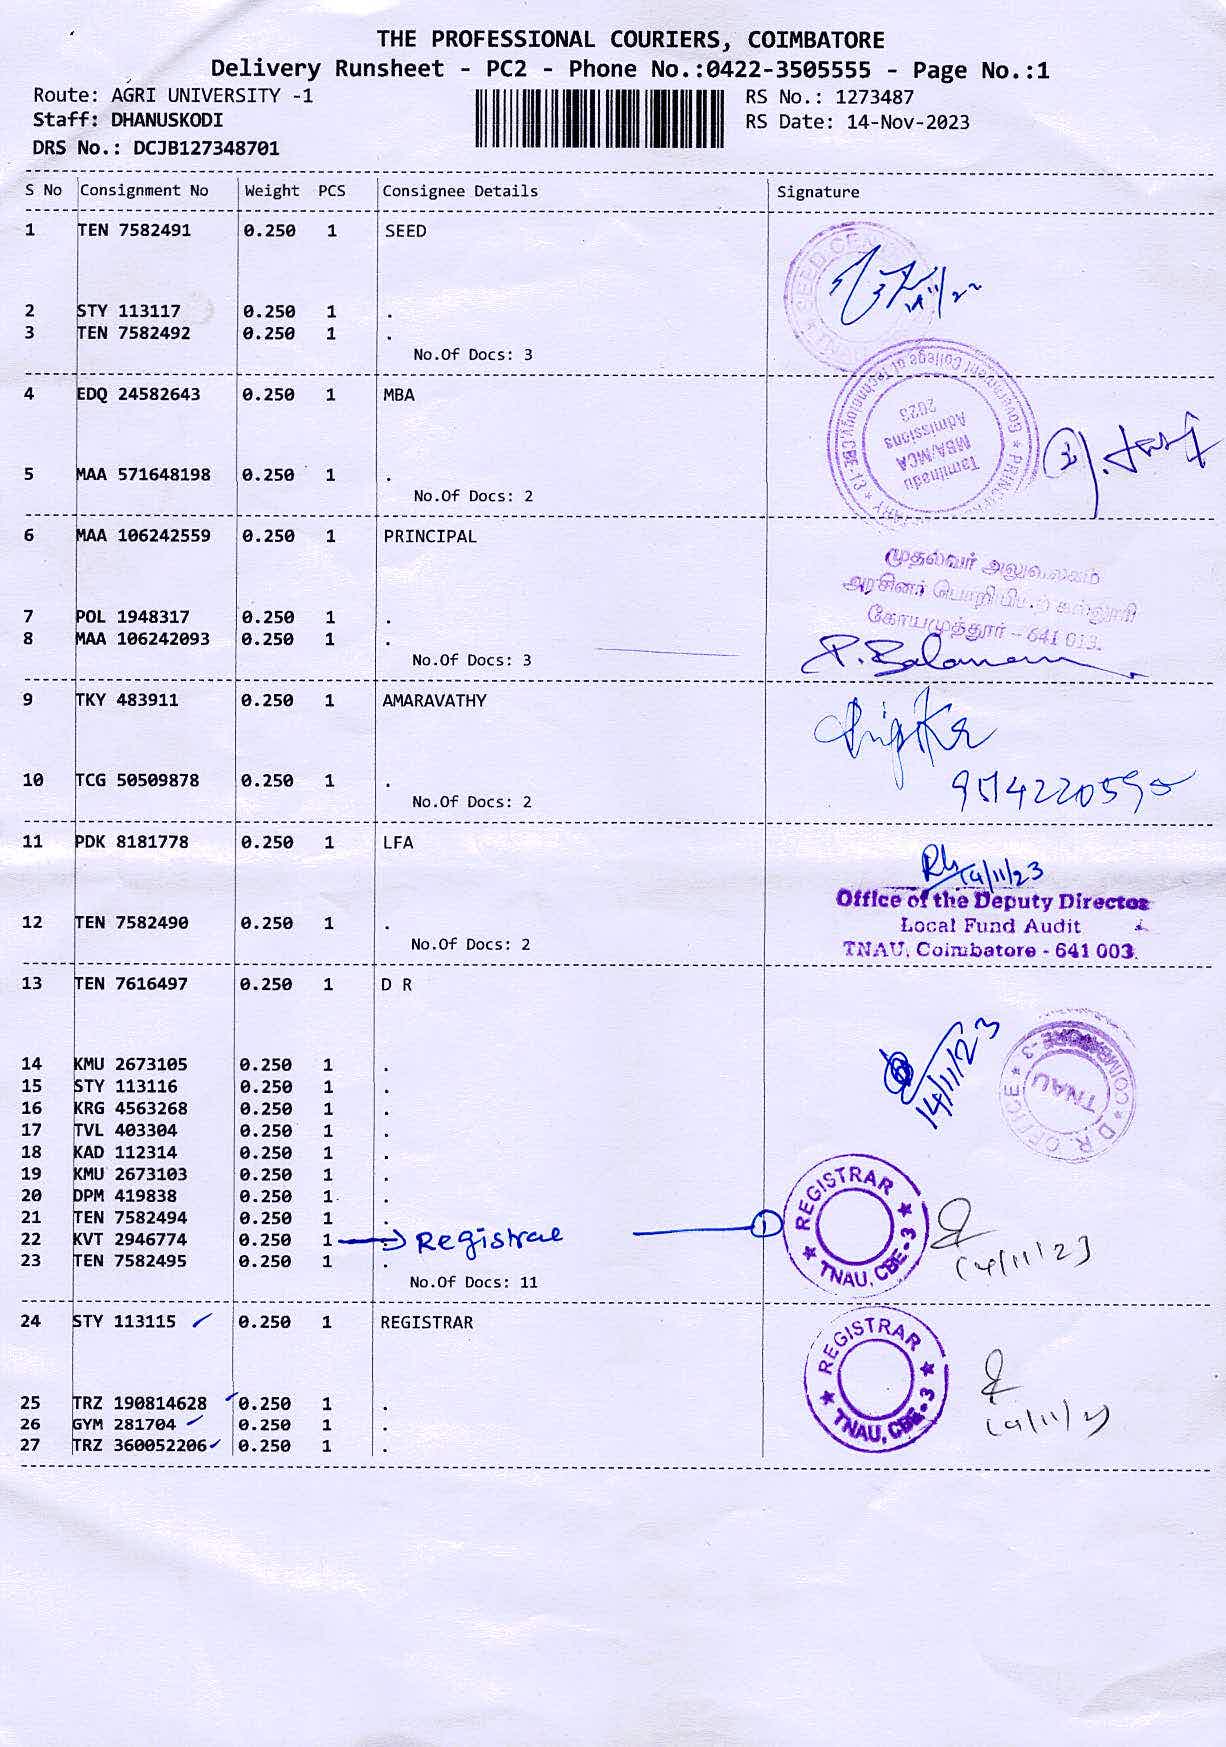 THE PROFESSIONAL COURIERS, COIMBATORE
Delivery Runsheet - PC2 - Phone No.:0422-3505555 - Page No.:1
Route: AGRI UNIVERSITY -1
RS No.: 1273487
Staff: DHANUSKODI
RS Date: 14-Nov-2023
DRS No.: DCJB127348701
S No Consignment No Weight PCS Consignee Details Signature
1 TEN 7582491 0.250 1 SEED
2 STY 113117 0.250 1 .
3 TEN 7582492 0.250 1 .
No.Of Docs: 3
Government College of Technology
Tamilnadu
MBA/MCA
Admissions
2023
4 EDQ 24582643 0.250 1 MBA
5 MAA 571648198 0.250 1 .
No.Of Docs: 2
6 MAA 106242559 0.250 1 PRINCIPAL
முதல்வர் அலுவலகம்
அரசினர்
கோயமுத்தூர் - 641 013.
7 POL 1948317 0.250 1 .
8 MAA 106242093 0.250 1 .
No.Of Docs: 3
9 TKY 483911 0.250 1 AMARAVATHY
10 TCG 50509878 0.250 1 .
No.Of Docs: 2
11 PDK 8181778 0.250 1 LFA
14/11/23
Office of the Deputy Director
Local Fund Audit
TNAU, Coimbatore - 641 003.
12 TEN 7582490 0.250 1 .
No.Of Docs: 2
13 TEN 7616497 0.250 1 D R
14/11/23
D R OFFICE * COIMBATORE-3 *
TNAU
14 KMU 2673105 0.250 1 .
15 STY 113116 0.250 1 .
16 KRG 4563268 0.250 1 .
17 TVL 403304 0.250 1 .
18 KAD 112314 0.250 1 .
19 KMU 2673103 0.250 1 .
20 DPM 419838 0.250 1 .
21 TEN 7582494 0.250 1 .
22 KVT 2946774 0.250 1 . Registrar 1
REGISTRAR
TNAU, CBE-3
14/11/23
23 TEN 7582495 0.250 1 .
No.Of Docs: 11
24 STY 113115 0.250 1 REGISTRAR
REGISTRAR
TNAU, CBE-3
25 TRZ 190814628 0.250 1 .
26 GYM 281704 0.250 1 .
27 TRZ 360052206 0.250 1 .